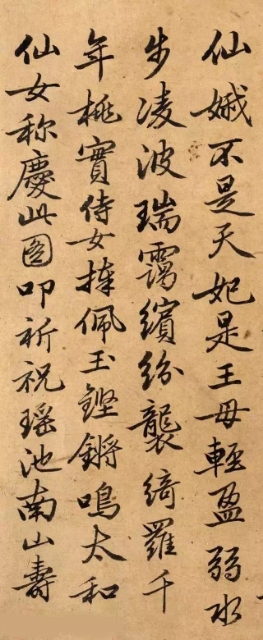 仙娥不是天妃是王母輕盈弱水
步凌波瑞靄繽紛襲綺羅千
年桃實侍女捧佩玉鏗鏘鳴太和
仙女称慶此图叩祈祝瑶池南山壽